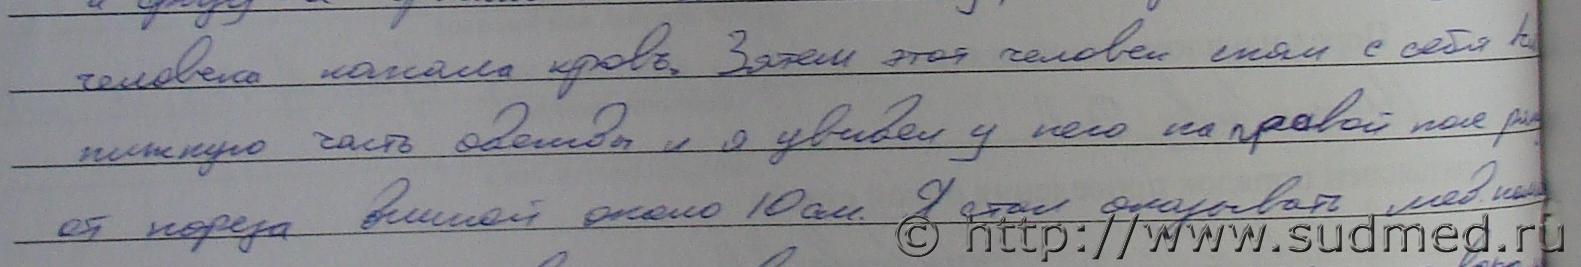 человека капала кровь. Затем этот человек снял с себя
нижнюю часть одежды и я увидел у него на правой ноге
от пореза длиной около 10 см. Я стал оказывать мед.
© http://www.sudmed.ru